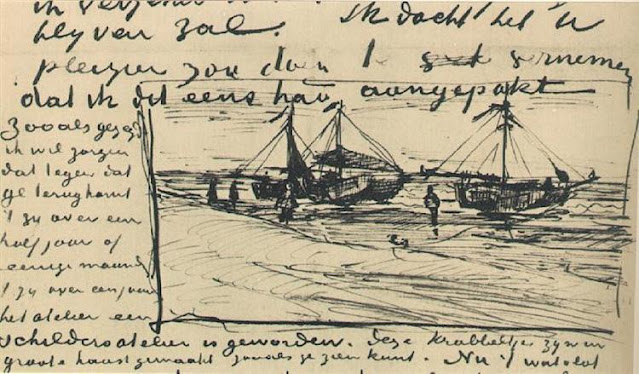 blyven zal. Ik dacht het U
plezier zou doen te vernemen
dat ik dit eens had aangepakt
Zooals gezegd
ik wil zorgen
dat tegen dat
ge terugkomt
't zy over een
half jaar of
eenige maand
't zy over een jaar
het atelier een
schildersatelier is geworden. Deze krabbeltjes zyn in
groote haast gemaakt zooals ge zien kunt. Nu 't wat